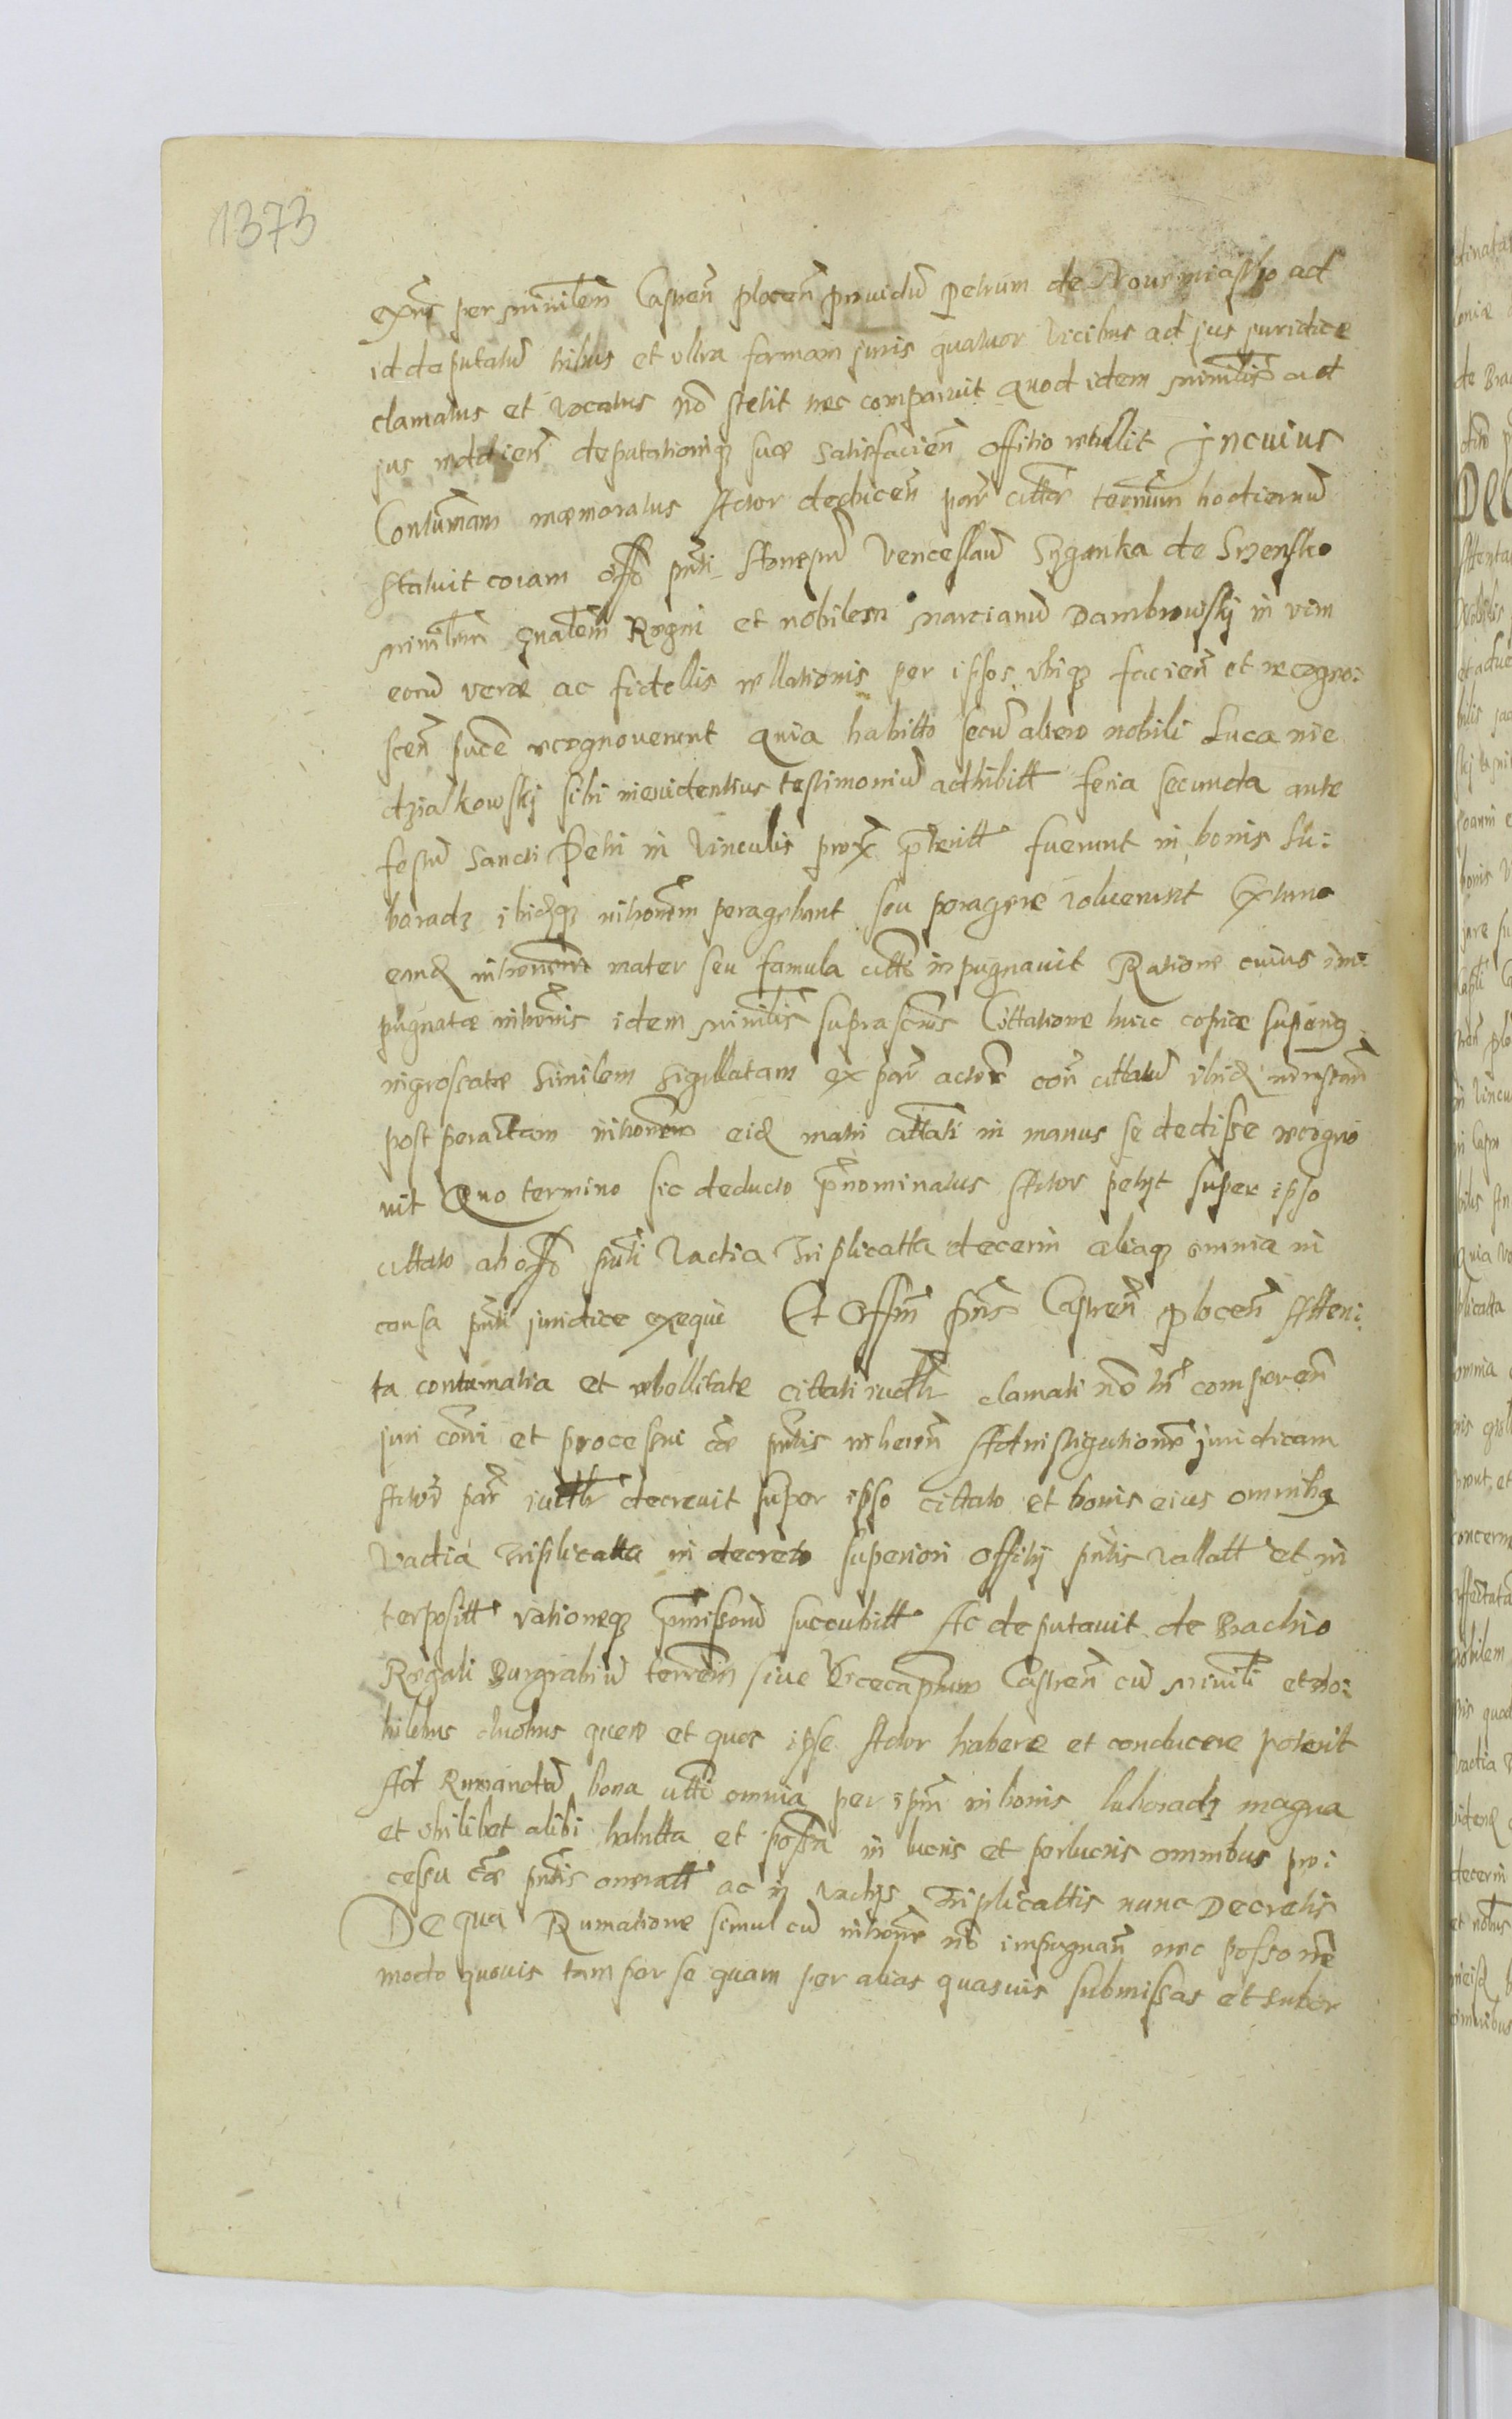 1373
exns per minilem Castren plocen prouidu Petrum de Nowemiastho ad
id deputatu tribus et vltra formam juris quatuor vicibus ad jus juridice
clamatus et vocatus no stetit nec comparuit Quod idem minilis ad
jus reddien deputationiq suæ satisfacien Offitio retullit Jn cuius
Contumam memoratus Actor deducen par cittar termum hodiernu
statuit coram offo pnti Venceslau Syganka de Srzensko
minilem gnalem Regni et nobilem marcianu Dambrowskj in vim
eoru veræ ac fidellis rellationis per ipsos vtiq facien et recogno:
scen recognouerunt Quia habitto secu altero nobili Luca nie
dzialkowskj sibi in euidentius testimoniu adhibitt feria secunda ante
festu Sancti Petri in Vinculis prox preteritt fuerunt in bonis Lu:
boradz ibidq intromem peragebant seu peragere voluerunt Extunc
eand intromem mater seu famula citti inpugnauit Ratione cuius im:
pugnatæ intromis idem minilis suprascrius Cittatione huic copiæ
ingrossatæ similem sigillatam ex par actor con cittatu ibid
post peractam intromem eid matri cittati in manus se dedisse recogno
uit Quo termino sic deducto prenominatus Actor petyt super ipso
cittato ab offo pnti Vadia Triplicatta decerni aliaq omnia in
causa pnti juridice exequi Et Offm pns Castren plocen Atten:
ta contumatia et rebellitate cittati clamati no tn comparen
juri comi et processui cæ pntis inheren Ad instigatione juridicam
Actor par decreuit super ipso cittato et bonis eius omnibq
Vadia Triplicatta in decreto superiori Offitij pntis vallatt et in
terpositt rationeq premissoru succubitt Ac deputauit de Brachio
Regali Burgrabiu terrem siue Vicecaptum Castren cu minili et no:
bilibus duobus quem et quos ipse Actor habere et conducere poterit
Ad Rumandu bona citti omnia per ipm in bonis luboradz magna
et vbilibet alibi habitta et possa in lucris et perlucris omnibus pro:
cessu cæ pntis ac in vadijs Triplicattis nunc Decretis
De qua Rumatione simul cu introne no impugnan nec possone
modo quouis tam per se quam per alias quasuis submissas et subor